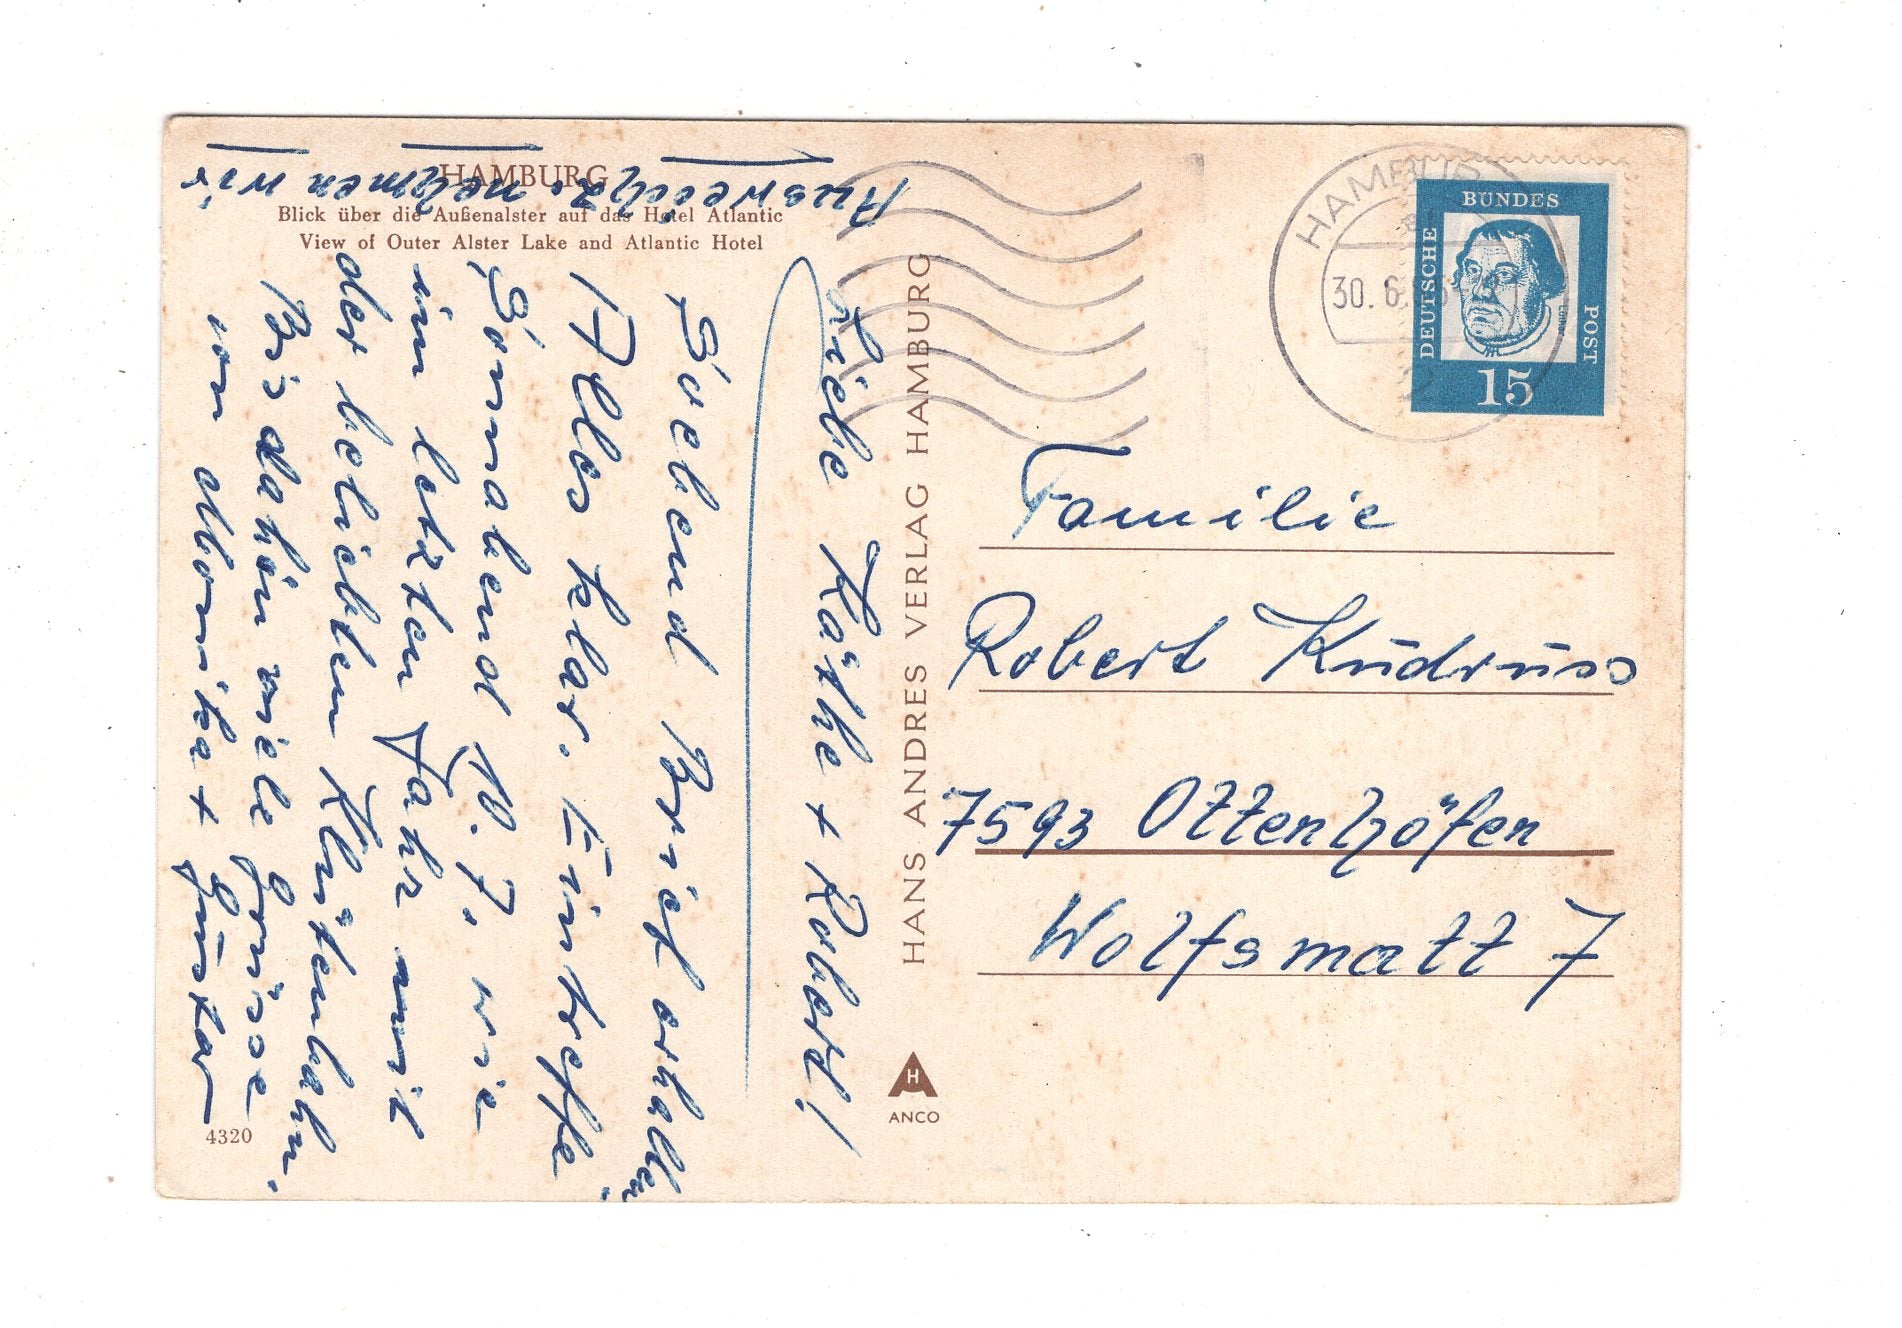 HAMBURG
Blick über die Außenalster auf das Hotel Atlantic
View of Outer Alster Lake and Atlantic Hotel
Liebe Käthe + Robert!
Soebend Brief erhalten.
Alles klar. Eintreffe
Sonnabend 10. 7. wie
im letzten Jahr mit
der beliebten Klütenbahn.
Bis dahin viele Grüsse
von Monika + Gustav
Ausweich. nehmen wir
HANS ANDRES VERLAG HAMBURG
H
ANCO
4320
HAMBURG
30. 6.
DEUTSCHE
BUNDES
POST
15
Familie
Robert Kudruss
7593 Ottenhöfen
Wolfsmatt 7